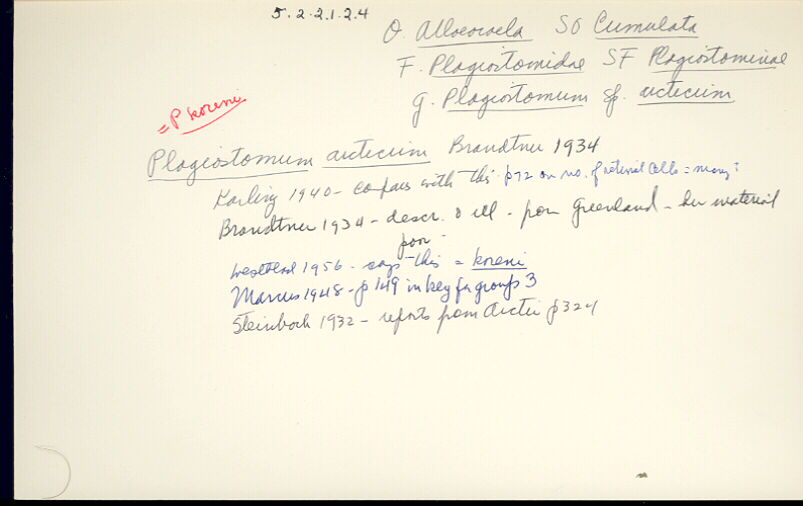 5.2.2.1.2.4
O. Alloeocoela SO Cumulata
F. Plagiostomidae SF Plagiostominae
G. Plagiostomum sp. arcticum
= P koreni
Plagiostomum arcticum Brandtner 1934
Karling 1940 - compares with this p72 on no. of retinal cells = many?
Brandtner 1934 - descr. & ill - from Greenland - her material
poor
Westblad 1956 - says this = koreni
Marcus 1948 - p 149 in key for groups 3
Steinbock 1932 - reports from Arctic p 324